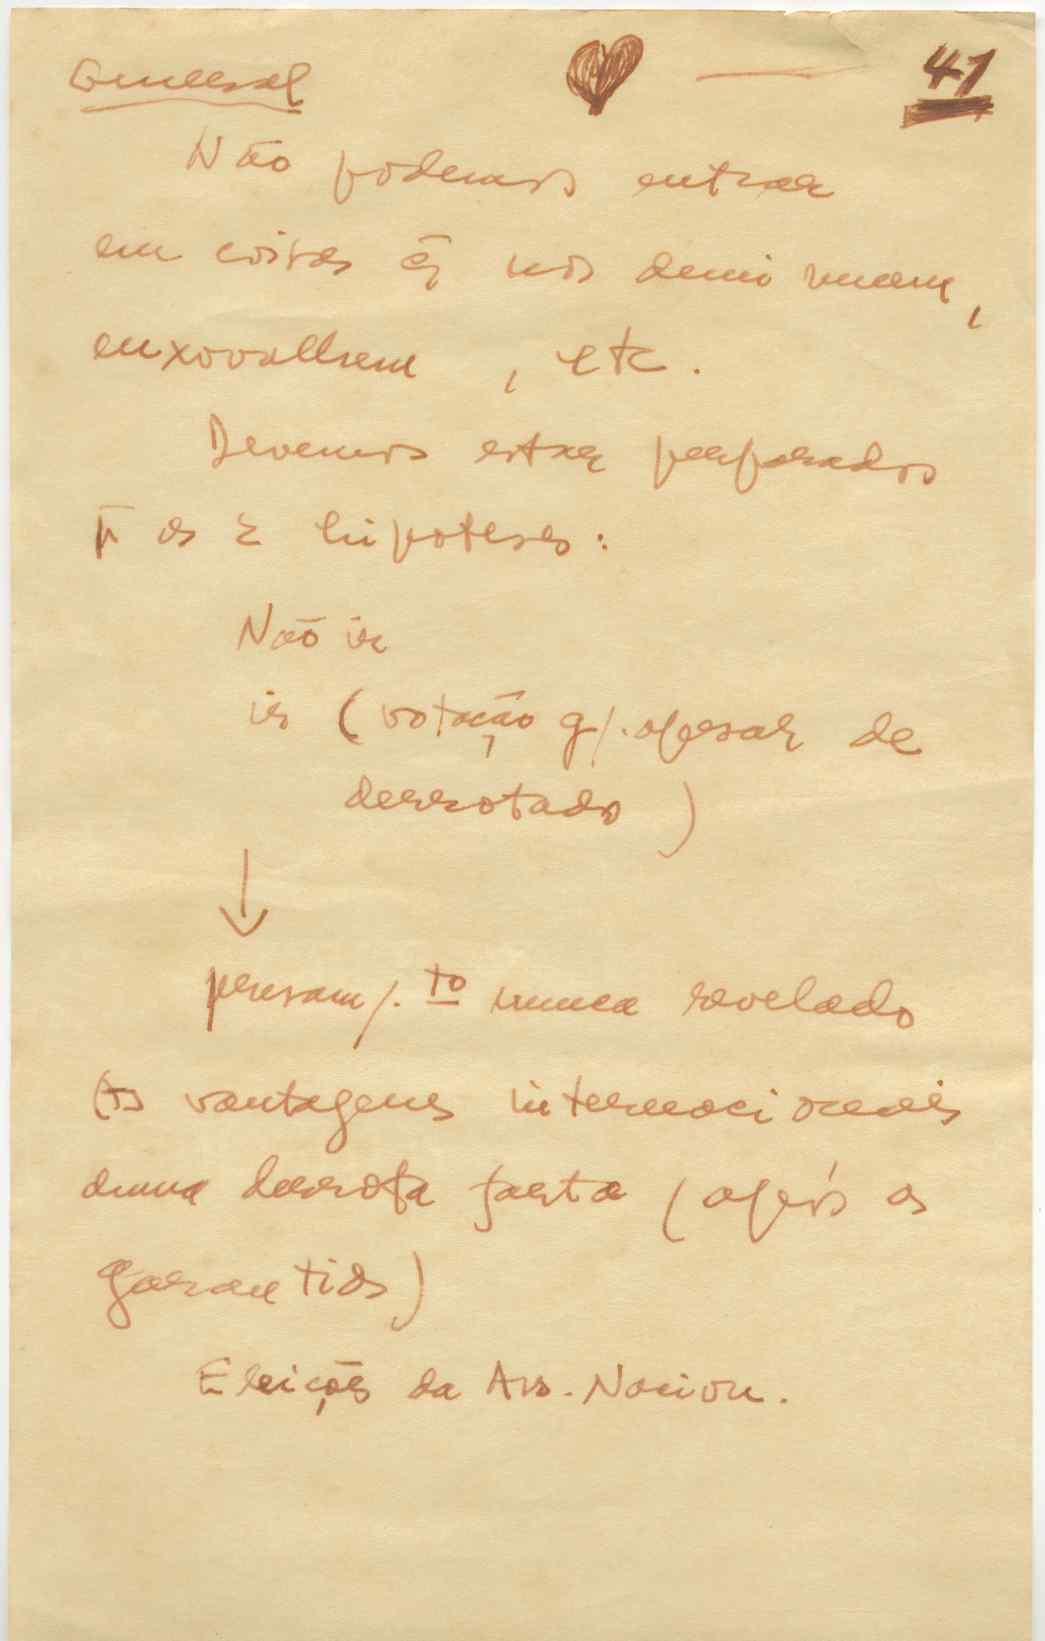 General 41
Não podemos entrar
em coisas q̃ nos deminuam,
enxovalhem, etc.
Devemos estar preparados
p̃ as 2 hipoteses:
Não ir
ir (votação g/. apesar de
derrotado)
↓
pensam/.to nunca revelado
as vantagens internacionais
duma derrota farta (após as
garantias)
Eleições da Ass. Nacion.